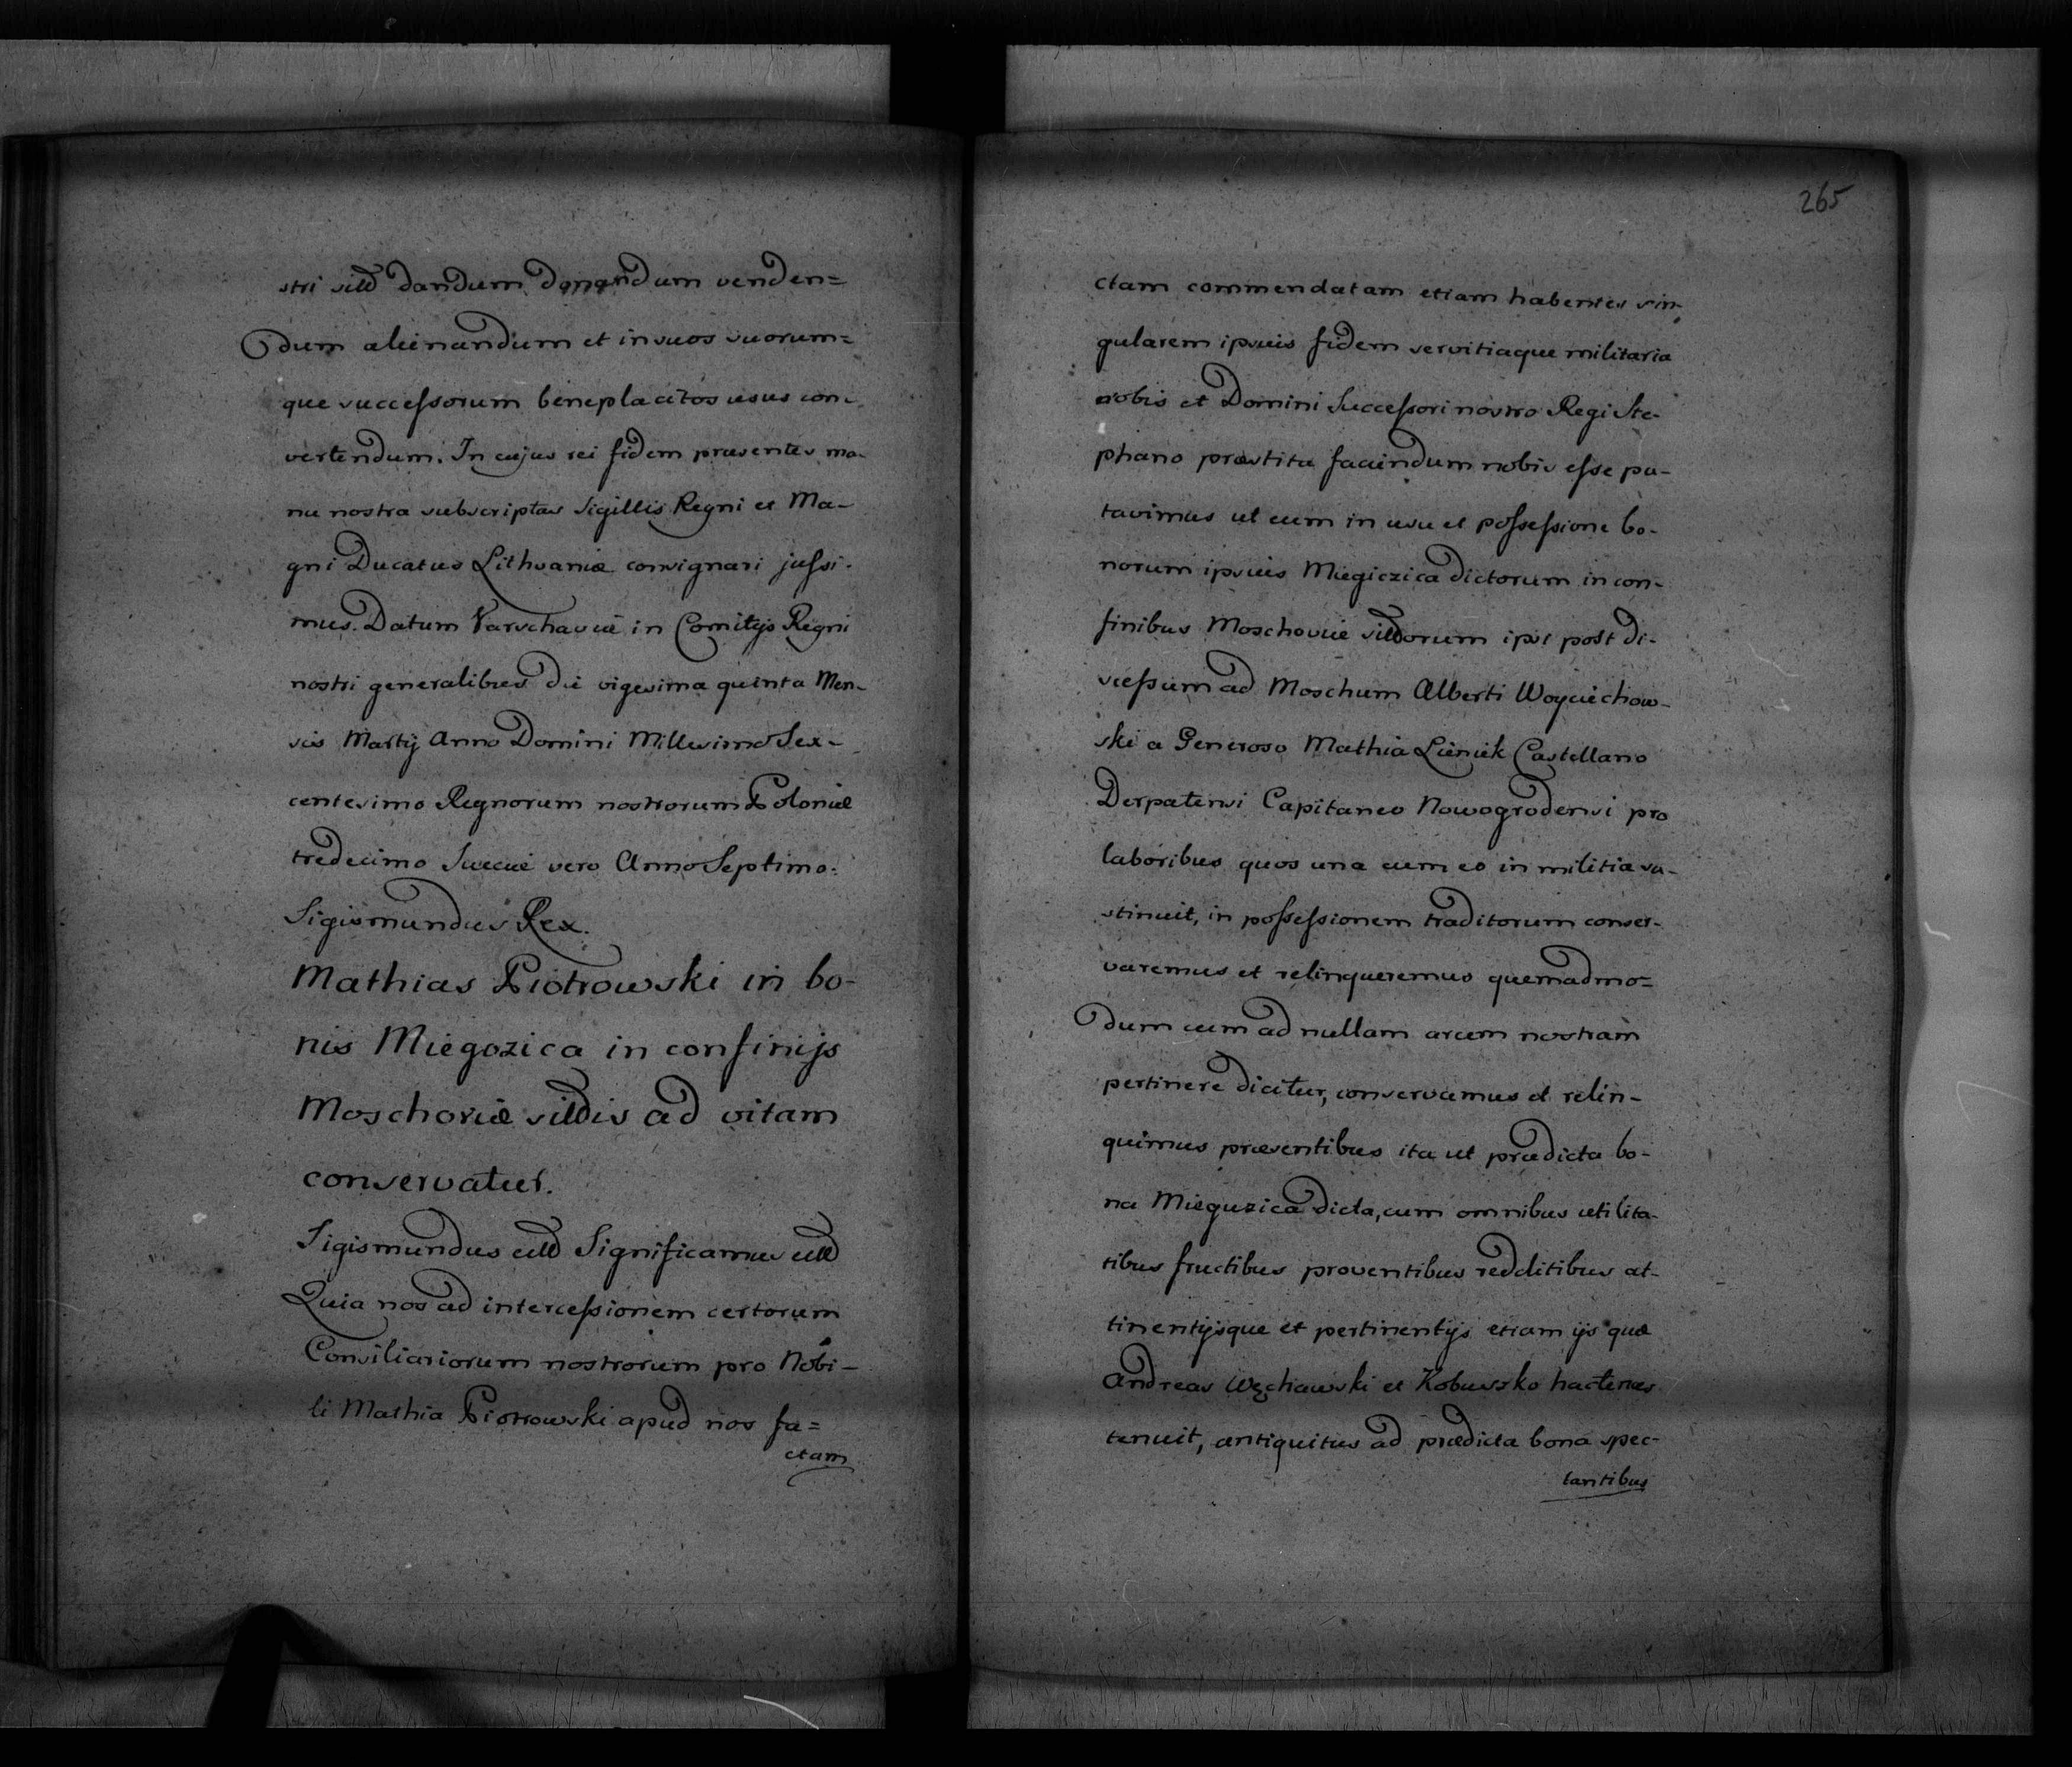 stri sitis dandum donandum venden=
dum alienandum et in suos suorum=
que successorum beneplacitos usus con-
vertendum. In cujus rei fidem præsentes ma-
nu nostra subscriptas Sigillis Regni et Ma-
gni Ducatus Lithvaniæ consignari jussi-
mus. Datum Varschaviæ in Comitijs Regni
nostri generalibus die vigesima quinta Men-
sis Martij Anno Domini Millesimo Sex-
centesimo Regnorum nostrorum Poloniæ
tredecimo Sueciæ vero Anno Septimo.
Sigismundus Rex.
Mathias Piotrowski in bo-
nis Miegozica in confinijs
Moschoviæ sitis ad vitam
conservatur.
Sigismundus Significamus
Quia nos ad intercessionem certorum
Consiliariorum nostrorum pro Nobi-
li Mathia Piotrowski apud nos fa=
ctam
265
ctam commendatam etiam habentes sin-
gularem ipsuis fidem servitiaque militaria
nobis et Domini Successori nostro Regi Ste-
phano præstita faciendum nobis esse pu-
tavimus ut eum in usu et possessione bo-
norum ipsuis Miegiczica dictorum in con-
finibus Moschoviæ ipsi post di-
scessum ad Moschum Alberti Woyciechow-
ski a Generoso Mathia Lieniek Castellano
Derpatensi Capitaneo Nowogrodensi pro
laboribus quos una cum eo in militia su-
stinuit, in possessionem traditorum conser-
varemus et relinqueremus quemadmo=
dum cum ad nullam arcem nostram
pertinere dicitur, conservamus et relin-
quimus præsentibus ita ut prædicta bo-
na Mieguzica dicta, cum omnibus utilita-
tibus fructibus proventibus redditibus at-
tinentijsque et pertinentijs etiam ijs quæ
Andreas et Kobuszko hactenus
tenuit, antiquitus ad prædicta bona spec-
tantibus